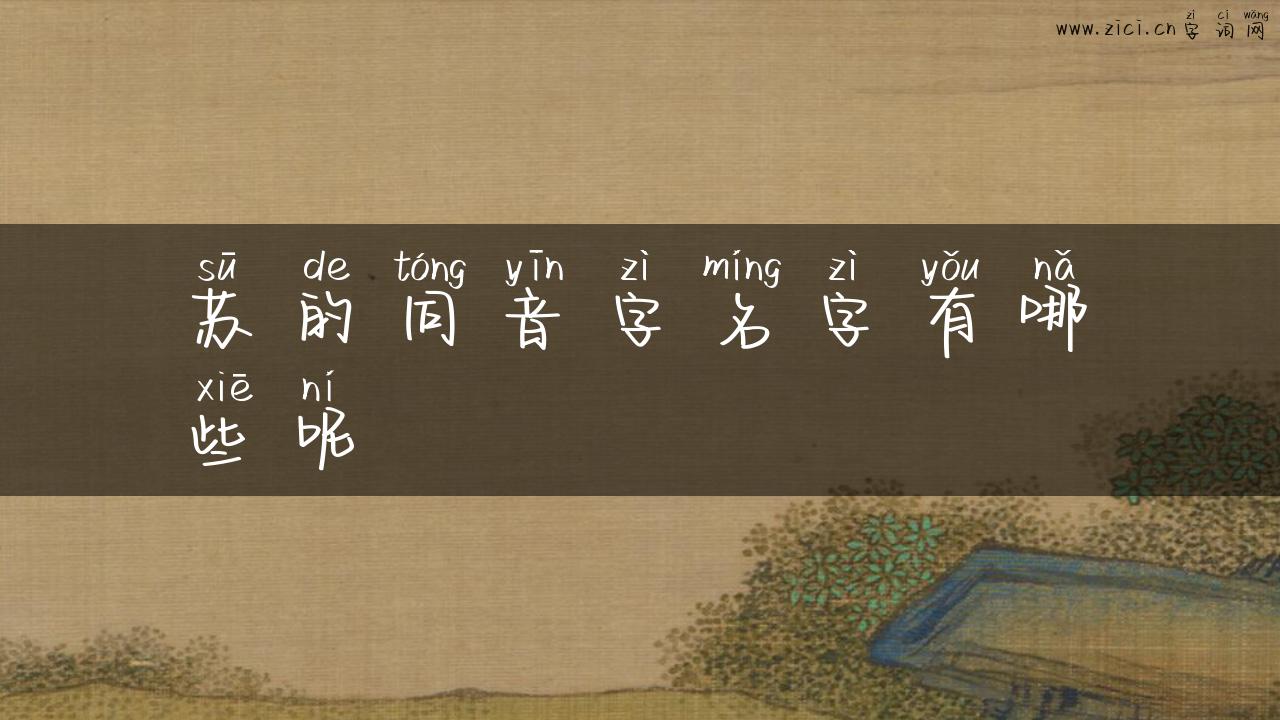 zì cí wǎng
www.zici.cn 字 词 网
sū de tóng yīn zì míng zì yǒu nǎ
苏 的 同 音 字 名 字 有 哪
xiē ní
些 呢